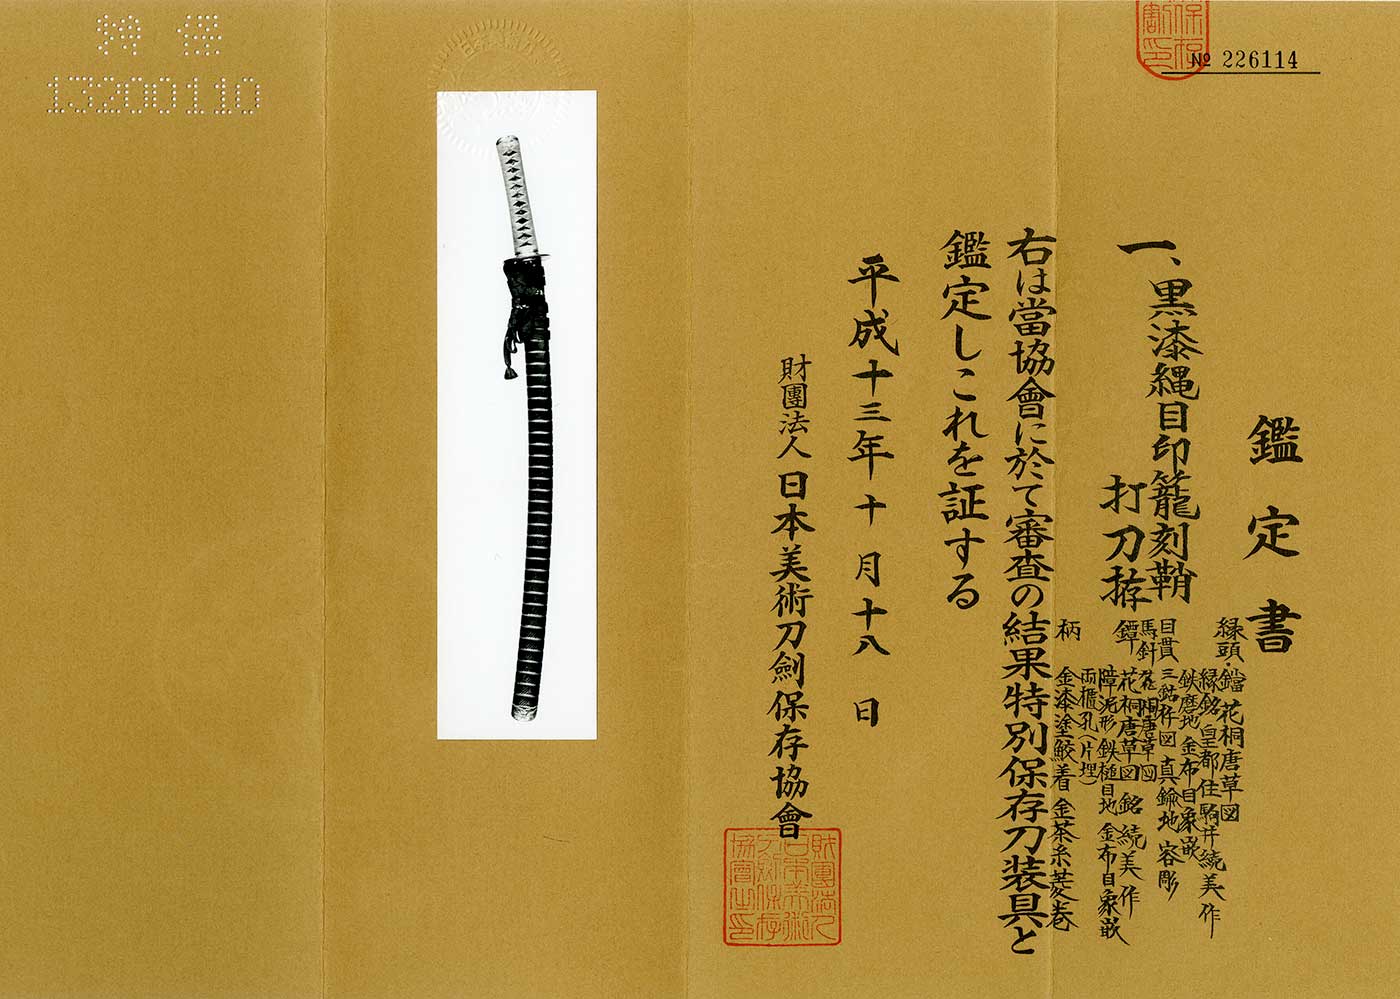 № 226114
鑑定書
一、黒漆縄目印籠刻鞘
打刀拵
縁頭・鐺 花桐唐草図
縁銘 皇都住駒井続美作
鉄磨地 金布目象嵌
目貫 三鈷杵図 真鍮地 容彫
馬針 花桐唐草図
鐔 花桐唐草図 銘 続美作
障泥形 鉄槌目地 金布目象嵌
両櫃孔(片埋)
柄 金漆塗鮫着 金茶糸菱巻
右は當協會に於て審査の結果特別保存刀装具と
鑑定しこれを証する
平成十三年十月十八日
財團法人 日本美術刀劍保存協會
13200110